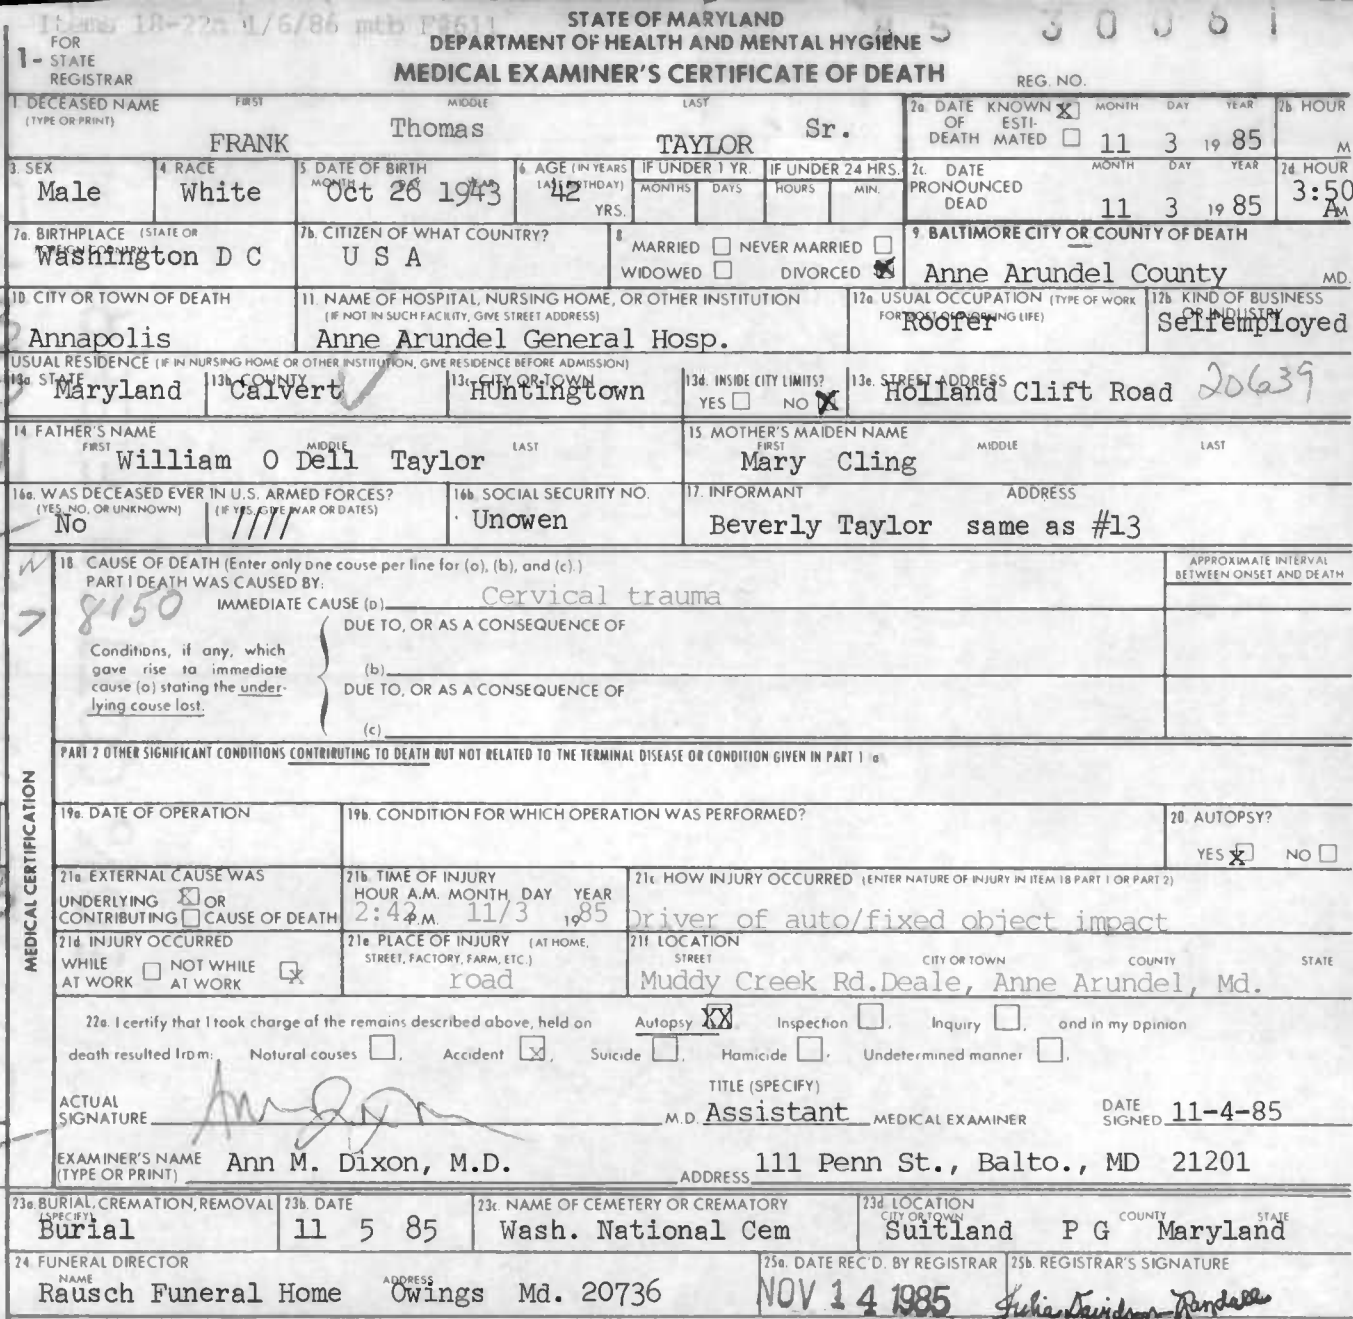 Items 18-22a 1/6/86 mtb F#611
STATE OF MARYLAND
85 30061
DEPARTMENT OF HEALTH AND MENTAL HYGIENE
1- FOR STATE REGISTRAR
MEDICAL EXAMINER'S CERTIFICATE OF DEATH
REG. NO.
1. DECEASED NAME FIRST MIDDLE LAST
(TYPE OR PRINT)
FRANK Thomas TAYLOR Sr.
2a. DATE OF DEATH KNOWN X ESTIMATED MONTH DAY YEAR
11 3 19 85
2b. HOUR
M
3. SEX
Male
4. RACE
White
5. DATE OF BIRTH
MONTH DAY YEAR
Oct 26 1943
6. AGE (IN YEARS LAST BIRTHDAY)
42 YRS.
IF UNDER 1 YR.
MONTHS DAYS
IF UNDER 24 HRS.
HOURS MIN.
2c. DATE PRONOUNCED DEAD MONTH DAY YEAR
11 3 19 85
2d. HOUR
3:50 AM
7a. BIRTHPLACE (STATE OR FOREIGN COUNTRY)
Washington D C
7b. CITIZEN OF WHAT COUNTRY?
U S A
8.
MARRIED NEVER MARRIED
WIDOWED DIVORCED X
9. BALTIMORE CITY OR COUNTY OF DEATH
Anne Arundel County MD.
10. CITY OR TOWN OF DEATH
Annapolis
11. NAME OF HOSPITAL, NURSING HOME, OR OTHER INSTITUTION
(IF NOT IN SUCH FACILITY, GIVE STREET ADDRESS)
Anne Arundel General Hosp.
12a. USUAL OCCUPATION (TYPE OF WORK FOR MOST OF WORKING LIFE)
Roofer
12b. KIND OF BUSINESS OR INDUSTRY
Selfemployed
USUAL RESIDENCE (IF IN NURSING HOME OR OTHER INSTITUTION, GIVE RESIDENCE BEFORE ADMISSION)
13a. STATE
Maryland
13b. COUNTY
Calvert
13c. CITY OR TOWN
HUntingtown
13d. INSIDE CITY LIMITS?
YES NO X
13e. STREET ADDRESS
Holland Clift Road 20639
14. FATHER'S NAME
FIRST MIDDLE LAST
William O Dell Taylor
15. MOTHER'S MAIDEN NAME
FIRST MIDDLE LAST
Mary Cling
16a. WAS DECEASED EVER IN U.S. ARMED FORCES?
(YES, NO, OR UNKNOWN) (IF YES, GIVE WAR OR DATES)
No ////
16b. SOCIAL SECURITY NO.
Unowen
17. INFORMANT ADDRESS
Beverly Taylor same as #13
18. CAUSE OF DEATH (Enter only one cause per line for (a), (b), and (c).)
PART I DEATH WAS CAUSED BY:
APPROXIMATE INTERVAL
BETWEEN ONSET AND DEATH
8150
IMMEDIATE CAUSE (a) Cervical trauma
DUE TO, OR AS A CONSEQUENCE OF
Conditions, if any, which
gave rise to immediate
cause (a) stating the under-
lying cause last.
(b)
DUE TO, OR AS A CONSEQUENCE OF
(c)
PART 2 OTHER SIGNIFICANT CONDITIONS CONTRIBUTING TO DEATH BUT NOT RELATED TO THE TERMINAL DISEASE OR CONDITION GIVEN IN PART 1 a
MEDICAL CERTIFICATION
19a. DATE OF OPERATION
19b. CONDITION FOR WHICH OPERATION WAS PERFORMED?
20. AUTOPSY?
YES X NO
21a. EXTERNAL CAUSE WAS
UNDERLYING X OR
CONTRIBUTING CAUSE OF DEATH
21b. TIME OF INJURY
HOUR A.M. MONTH, DAY YEAR
2:42 P.M. 11/3 1985
21c. HOW INJURY OCCURRED (ENTER NATURE OF INJURY IN ITEM 18 PART 1 OR PART 2)
Driver of auto/fixed object impact
21d. INJURY OCCURRED
WHILE AT WORK NOT WHILE AT WORK X
21e. PLACE OF INJURY (AT HOME, STREET, FACTORY, FARM, ETC.)
road
21f. LOCATION
STREET CITY OR TOWN COUNTY STATE
Muddy Creek Rd.Deale, Anne Arundel, Md.
22a. I certify that I took charge of the remains described above, held an Autopsy XX Inspection , Inquiry , and in my opinion
death resulted from: Natural causes , Accident X , Suicide , Homicide , Undetermined manner .
TITLE (SPECIFY)
ACTUAL SIGNATURE M.D. Assistant MEDICAL EXAMINER DATE SIGNED 11-4-85
EXAMINER'S NAME
(TYPE OR PRINT) Ann M. Dixon, M.D. ADDRESS 111 Penn St., Balto., MD 21201
23a. BURIAL, CREMATION, REMOVAL (SPECIFY)
Burial
23b. DATE
11 5 85
23c. NAME OF CEMETERY OR CREMATORY
Wash. National Cem
23d. LOCATION
CITY OR TOWN COUNTY STATE
Suitland P G Maryland
24. FUNERAL DIRECTOR
NAME ADDRESS
Rausch Funeral Home Owings Md. 20736
25a. DATE REC'D. BY REGISTRAR
NOV 14 1985
25b. REGISTRAR'S SIGNATURE
Julia Davidson-Randall